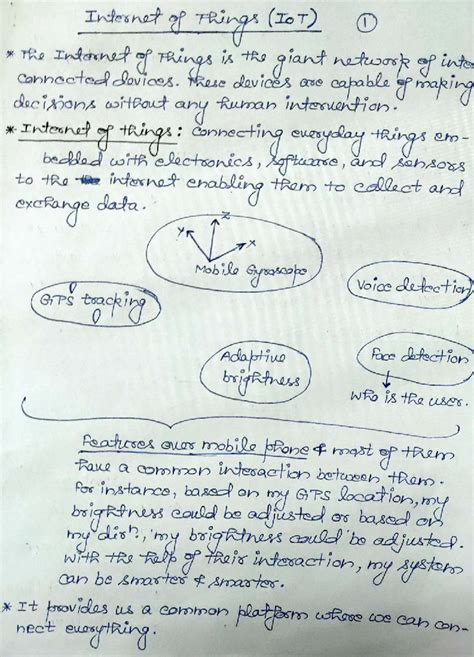 Internet of Things (IoT) 1
* The Internet of Things is the giant network of inter
connected devices. These devices are capable of making
decisions without any human intervention.
* Internet of things: connecting everyday things em-
bedded with electronics, software, and sensors
to the internet enabling them to collect and
exchange data.
Z
Y
X
Mobile Gyroscope
GPS tracking
Voice detection
Adaptive
brightness
Face detection
who is the user.
Features over mobile phone & most of them
have a common interaction between them.
for instance, based on my GPS location, my
brightness could be adjusted or based on
my dirⁿ., my brightness could be adjusted.
With the help of their interaction, my system
can be smarter & smarter.
* It provides us a common platform where we can con-
nect everything.